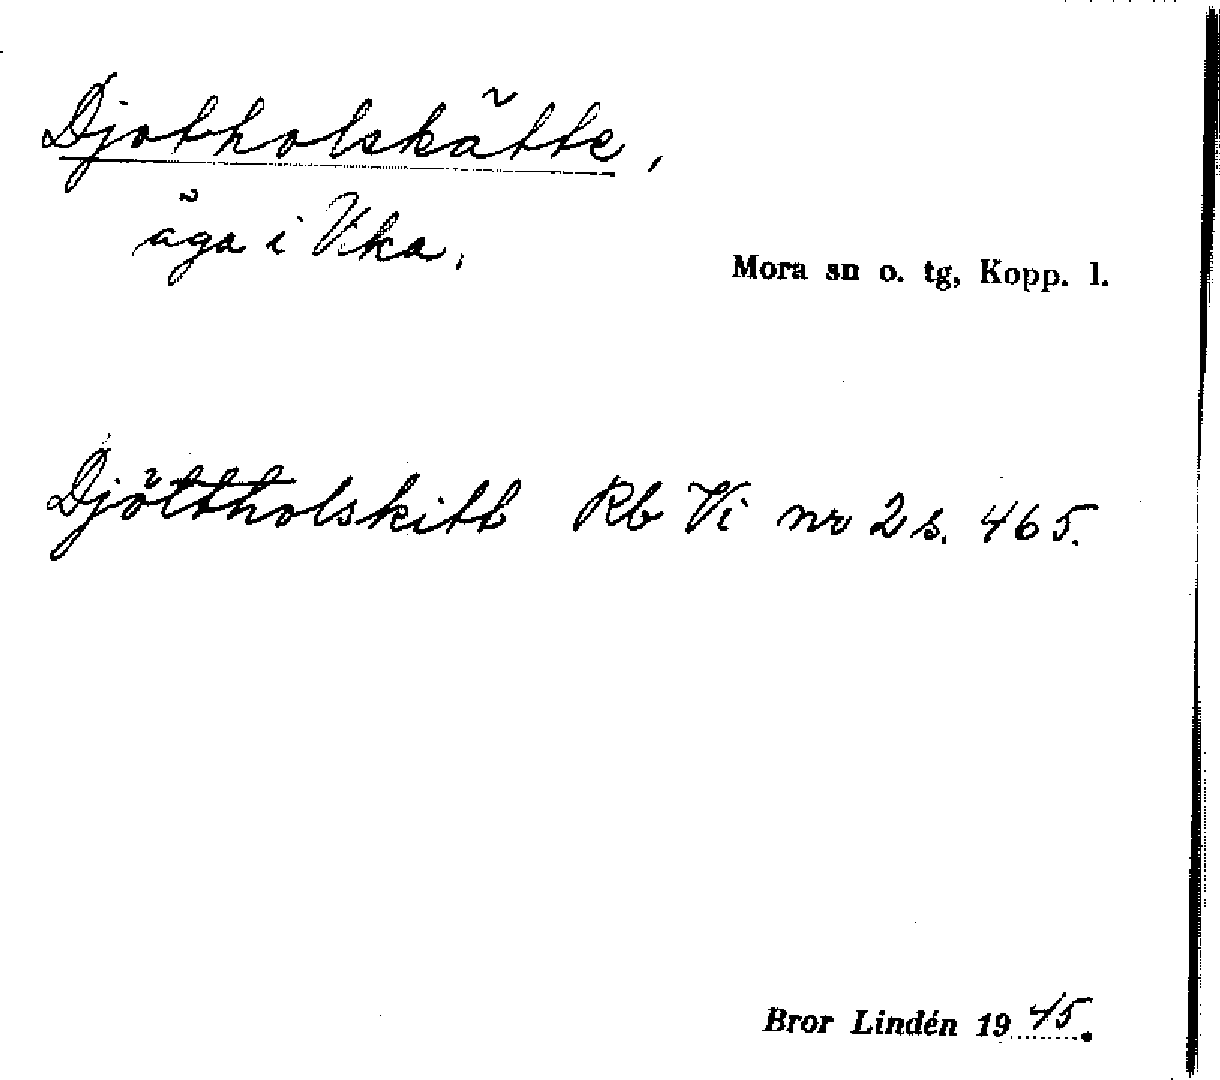 Djotholskätte,
äga i Vika.
Mora sn o. tg, Kopp. l.
Djöttholskitt Rb Vi nr 2 s. 465.
Bror Lindén 1945.